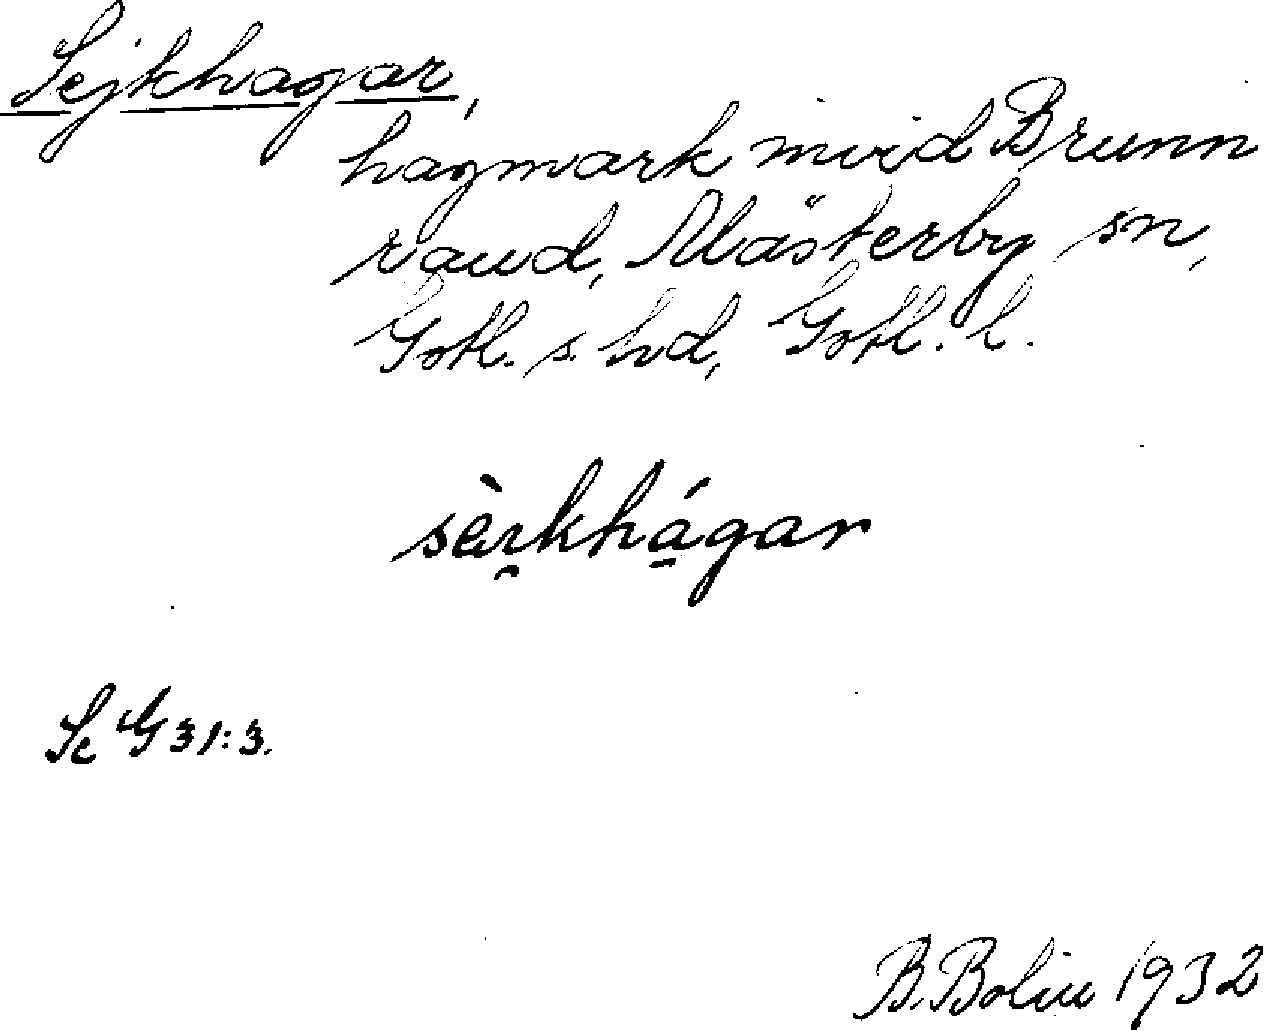 Sejkhagar,
hagmark mvid Brunn
raud, Mästerby sn,
Gotl. s. hd, Gotl. l.
sèi̯khá̱gar
Se G 31:3.
B. Bolin 1932